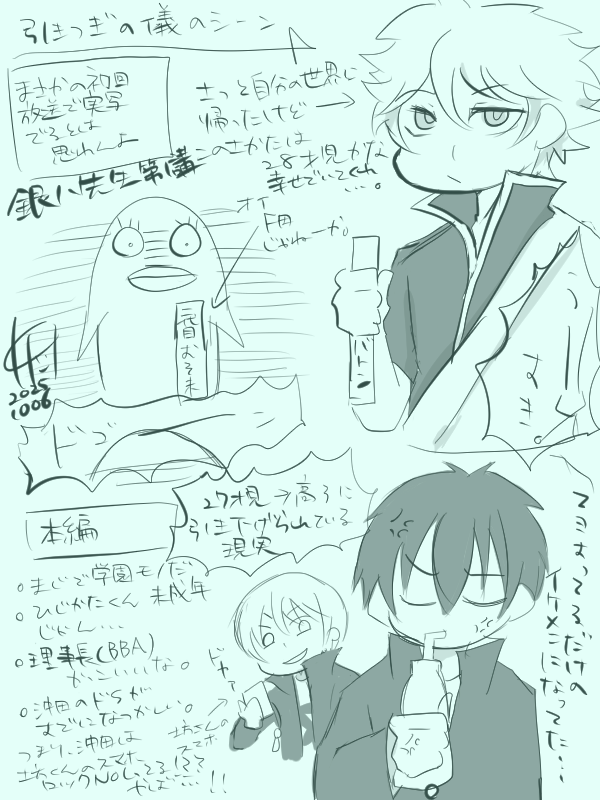 引きつぎの儀のシーン
まさかの初回
放送で実写
でるとは
思わんよ
さっと自分の世界に
帰ったけど
このさかたは
28才児かな
幸せでいてくれ
…。
銀八先生第1講
オイ
じゃねーか。
バトン
なき。
2025
1006
本編
27才児→高3に
引き下げられている
現実
◦まじで学園モノだ
◦ひじかたくん 未成年
じゃん…
◦理事長(BBA)
がこいいな。
◦沖田のドSが
すでになつかしい。
つまり、沖田は
坊くんのスマホ
ロックNoしってる!?
やば…!!
ドヤァ
坊くんの
スマホ
マヨすってるだけの
イケメンになってた…